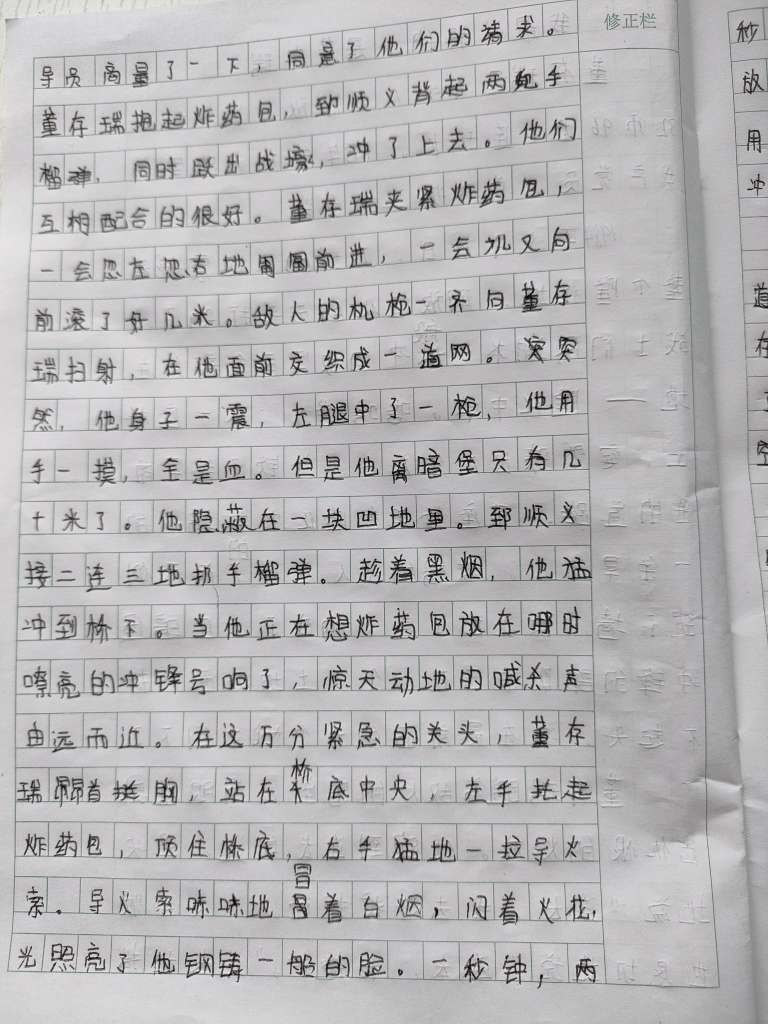 修正栏
导员商量了一下，同意了他们的请求。
董存瑞抱起炸药包，郅顺义背起两兜手
榴弹，同时跃出战壕，冲了上去。他们
互相配合的很好。董存瑞夹紧炸药包，
一会忽左忽右地匍匐前进，一会儿又向
前滚了好几米。敌人的机枪一齐向董存
瑞扫射，在他面前交织成一道网。突突
然，他身子一震，左腿中了一枪，他用
手一摸，全是血。但是他离暗堡只有几
十米了。他隐蔽在一块凹地里。郅顺义
接二连三地扔手榴弹。趁着黑烟，他猛
冲到桥下。当他正在想炸药包放在哪时
嘹亮的冲锋号响了，惊天动地的喊杀声
由远而近。在这万分紧急的关头，董存
瑞昂首挺胸，站在桥底中央，左手托起
炸药包，顶住桥底，右手猛地一拉导火
索。导火索哧哧地冒着白烟，闪着火花，
光照亮了他钢铸一般的脸。一秒钟，两
秒
放
用
冲
道
在
了
空